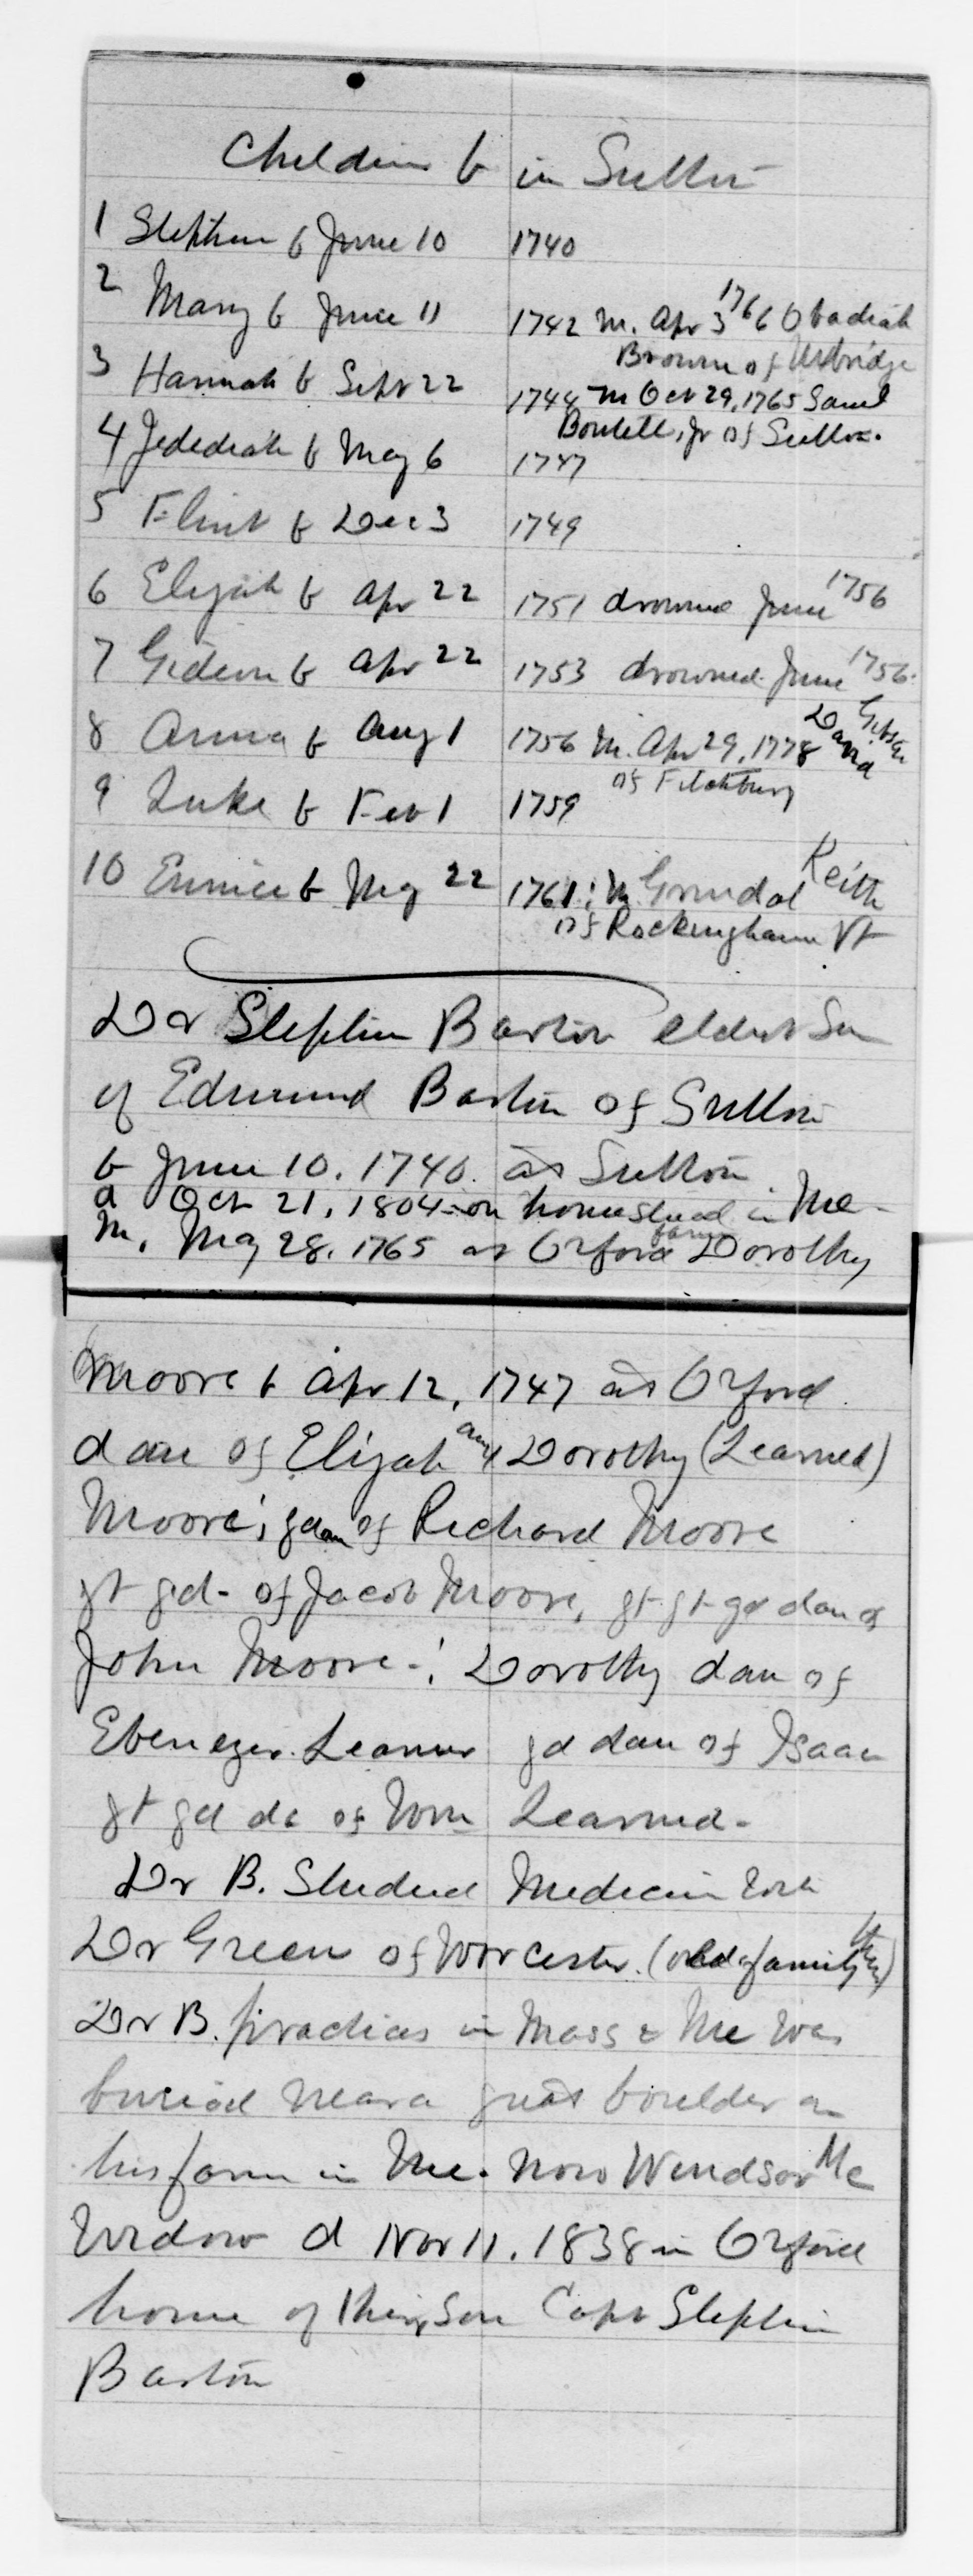 Children b in Sutton
1 Stephen b June 10 1740
2 Mary b June 11 1742 m. Apr 3 1766 Obadiah
Brown of Uxbridge
3 Hannah b Sept 22 1744 m Oct 29, 1765 Saml
Boutell, Jr of Sutton.
4 Jedediah b May 6 1747
5 Flint b Dec 3 1749
6 Elijah b Apr 22 1751 drowned June 1756
7 Gideon b Apr 22 1753 drowned June 1756.
8 Anna b Aug 1 1756 m. Apr 29, 1778 David Gibson
of Fitchburg
9 Luke b Feb 1 1759
10 Eunice b May 22 1761; m Grindal Keith
of Rockingham Vt
Dr Stephen Barton eldest son
of Edmund Barton of Sutton
b June 10. 1740. at Sutton
d Oct 21, 1804 - on homestead farm in Me -
m. May 28. 1765 at Oxford Dorothy
Moore b Apr 12, 1747 at Oxford
dau of Elijah and Dorothy (Learned)
Moore; gdau of Richard Moore
gt gd - of Jacob Moore, gt-gt-gd dau of
John Moore -; Dorothy dau of
Ebenezer Learned gd dau of Isaac
gt gd da of Wm Learned -
Dr B. Studied Medicine with
Dr Green of Worcester. (old family then)
Dr B. practices in Mass & Me was
buried near a great boulder on
his farm in Me. now Windsor Me
Widow d Nov 11. 1838 in Oxford
home of their son Capt Stephen
Barton